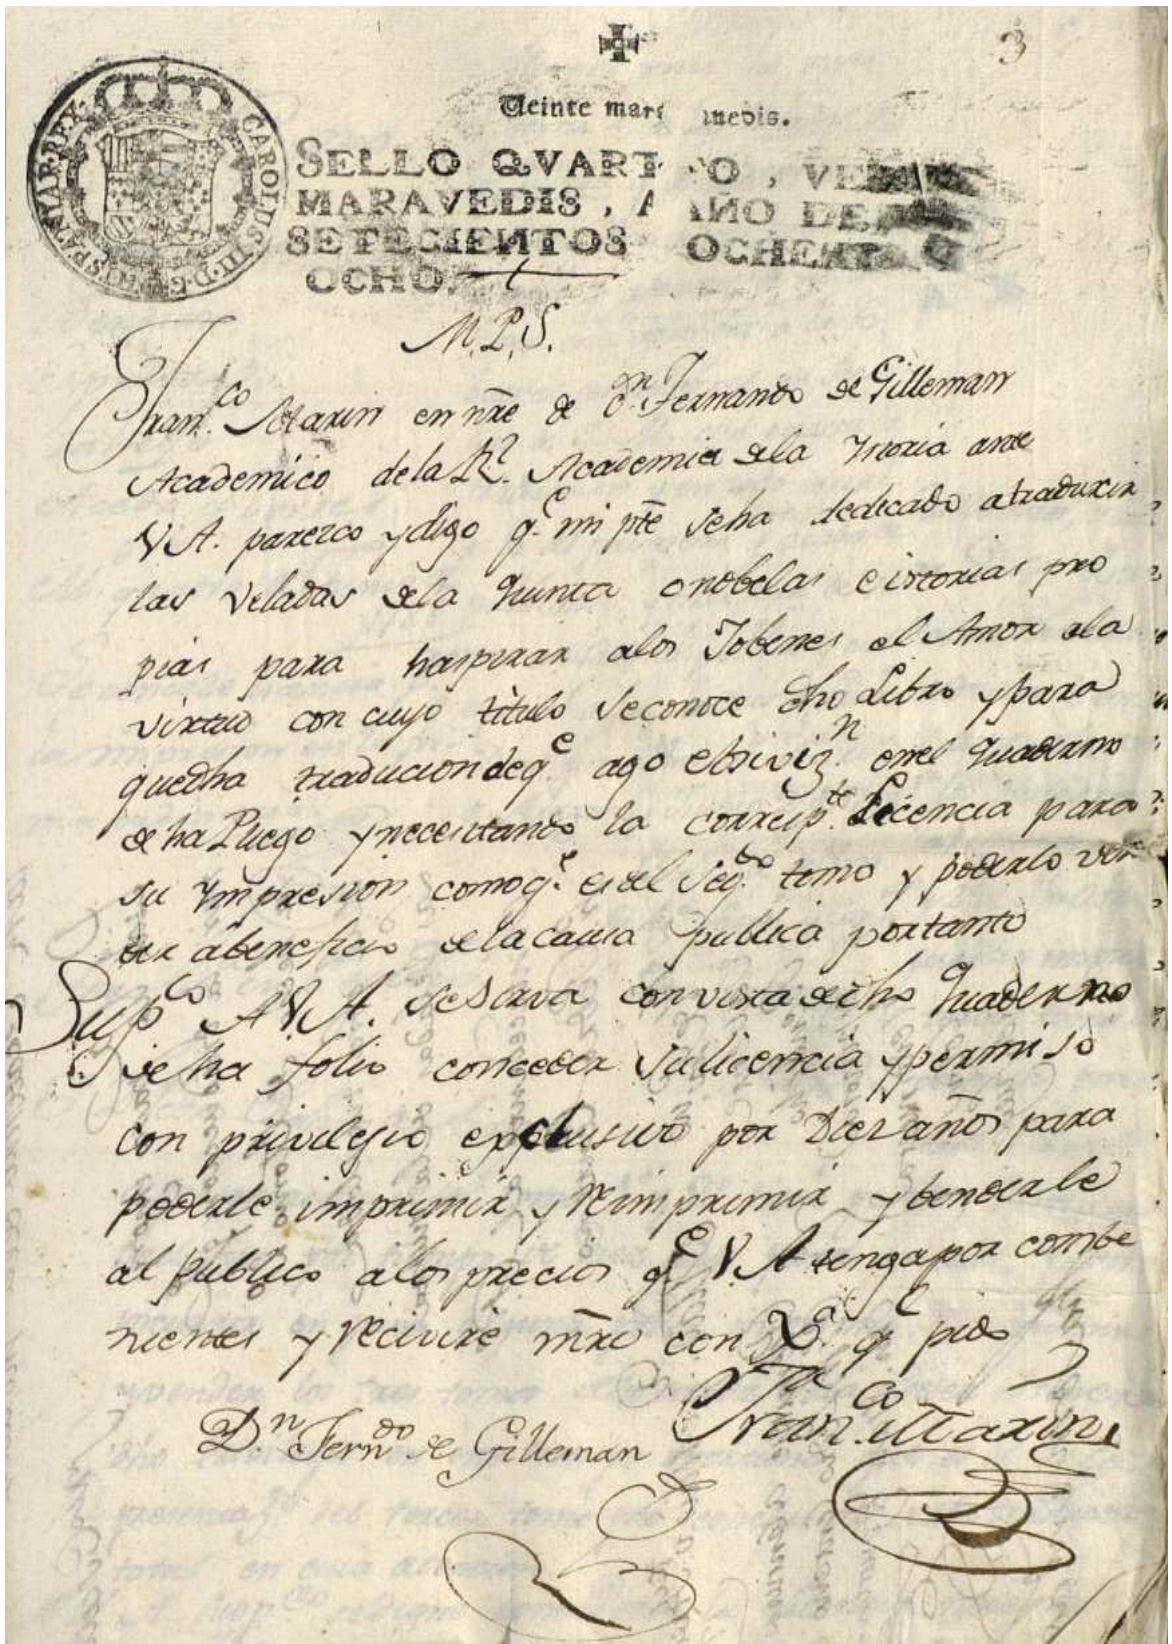 3
Veinte mar medis.
CAROLUS III D G HISPANIAR REX
SELLO QVARTO, VE
MARAVEDIS, AÑO DE
SETECIENTOS OCHENT
OCHO.
M.P.S.
Fran.co Marin en nr̃e de Dn. Fernando de Gilleman
Academico de la Rl. Academia de la Ystoria ante
V.A. parezco y digo q.e mi pt̃e se ha dedicado a traducir
las Veladas de la Quinta o nobelas e istorias pro
pias para hasspirar a los Jobenes el Amor a la
virtud con cuyo titulo se conoce dho Libro y para
que dha traducion de q.e ago en el Quaderno
de ha Pliego y necesitando la corresp.te Licencia para
su Ympresion como q.e es el Seg.do tomo y poderlo ver
a beneficio de la causa publica por tanto
Sup.co A V.A. se sirva con vista de dho Quaderno
de ha folio conceder su licencia y permiso
con privilegio exclusivo por Diez años para
poderle imprimir y Reimprimir y benderle
al publico a los precios q.e V.A tenga por combe
nientes y Recivire mr̃e con q.e pido
Fran.co Marin
D.n Fern.do de Gilleman